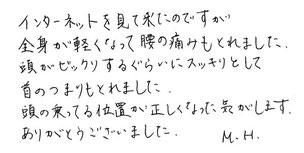 インターネットを見て来たのですが
全身が軽くなって腰の痛みもとれました.
頭がビックリするぐらいにスッキリとして
首のつまりもとれました.
頭の乗ってる位置が正しくなった気がします.
ありがとうございました.
M.H.